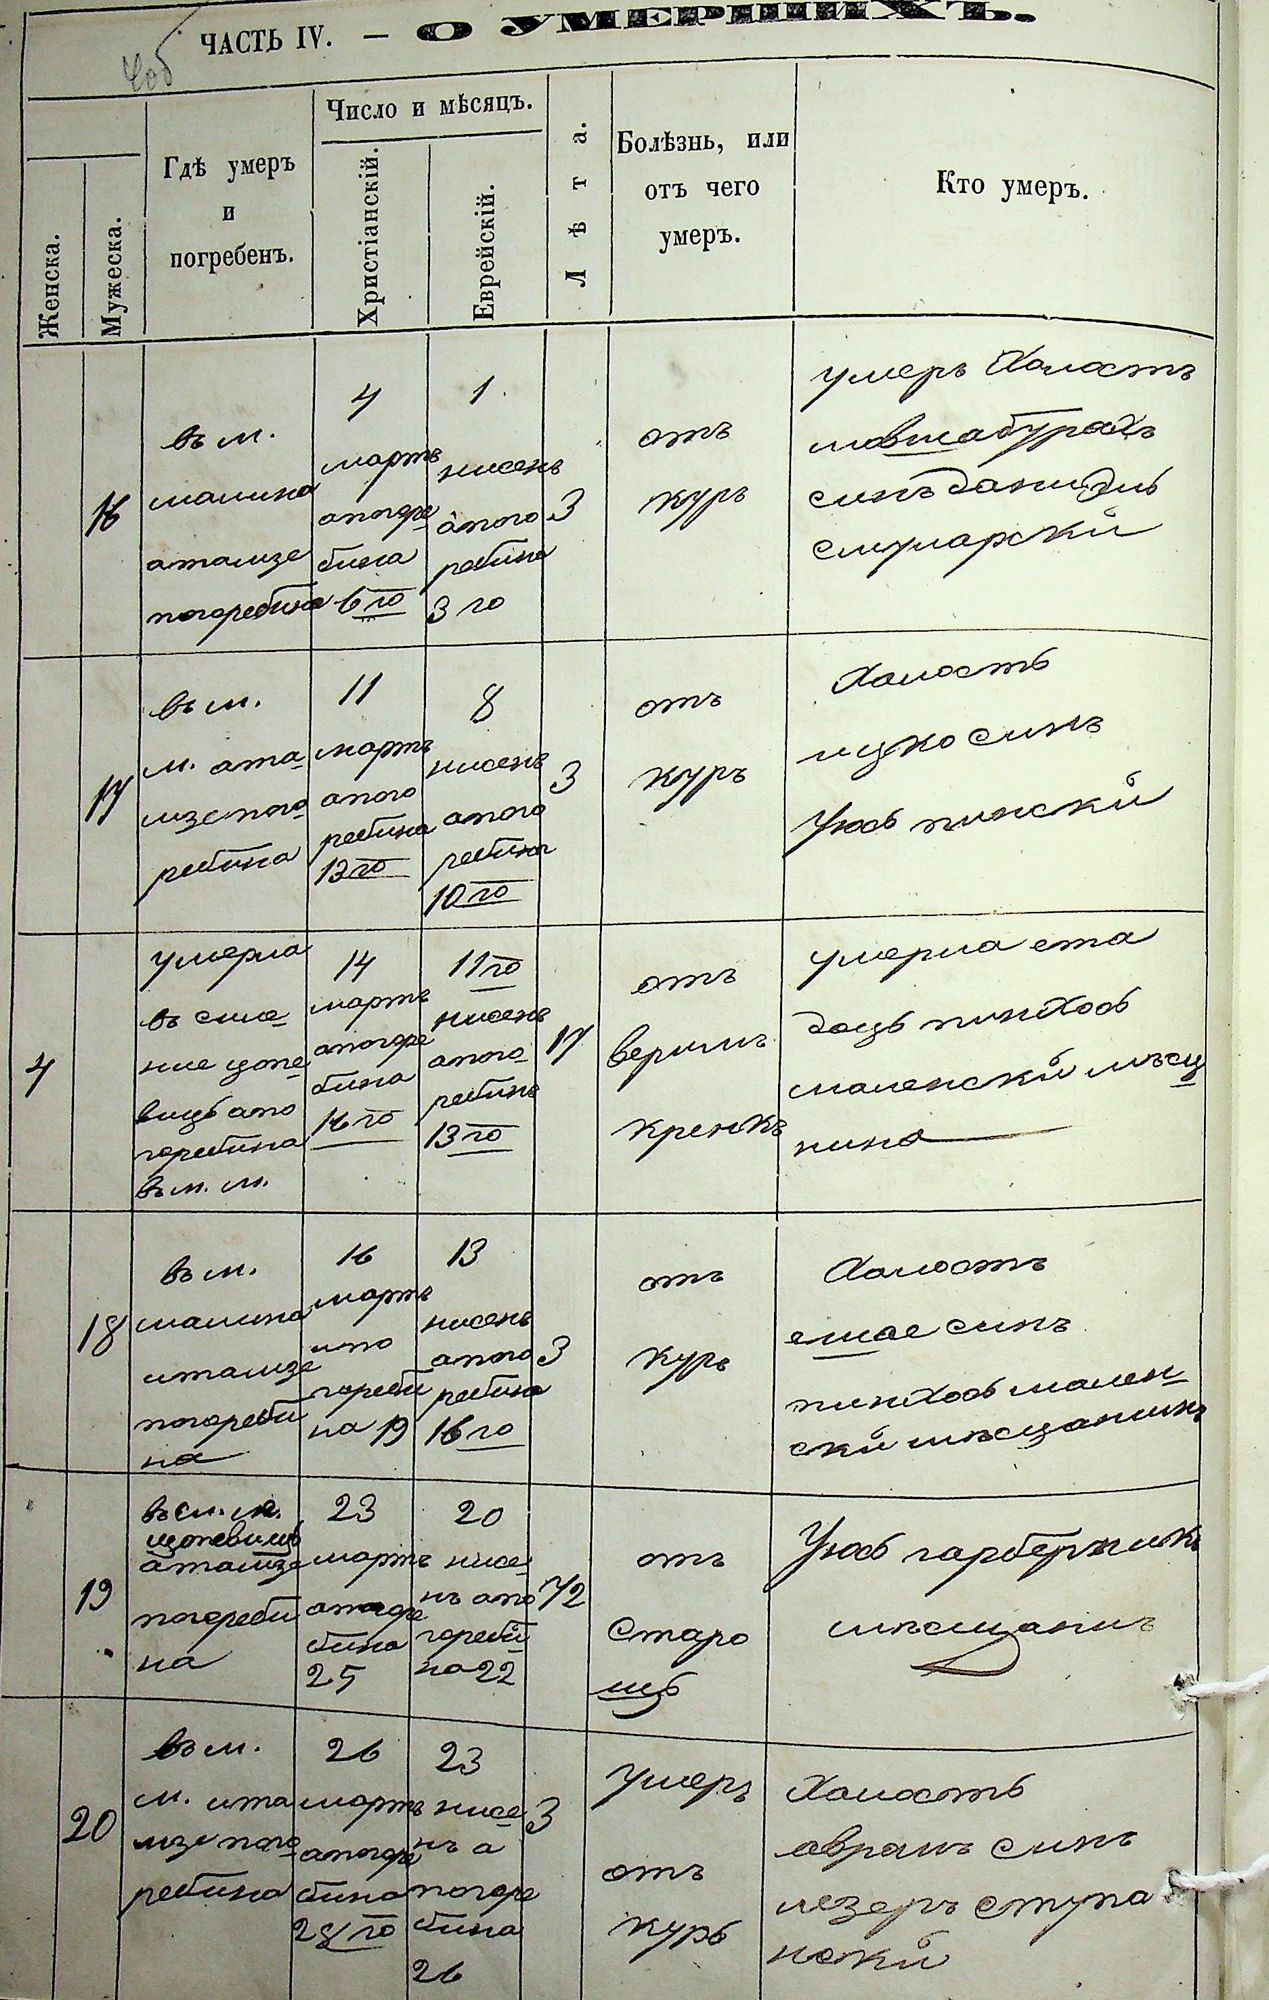 ЧАСТЬ IV. — О УМЕРШИХЪ.
Женска.
Мужеска.
Гдѣ умеръ
и
погребенъ.
Число и мѣсяцъ.
Христіанскій.
Еврейскій.
Лѣта.
Болѣзнь, или
отъ чего
умеръ.
Кто умеръ.
16
въ м.
малина
атамзе
погребина
4
мартъ
апогре
бина
6 го
1
нисень
апого
ребина
3 го
3
отъ
куръ
умеръ Халостъ
мовшабурахъ
синъ даниэль
смуларскй
17
въ м.
м. ата
мзе пого
ребина
11
мартъ
апого
ребина
13 го
8
нисень
апого
ребина
10 го
3
отъ
куръ
Халостъ
ицко синъ
Уюсь пинскй
4
умерла
въ сме
ние цопе
вицъ апо
гребина
въ м. м.
14
мартъ
апогре
бина
16 го
11 го
нисень
апого
ребинъ
13 го
17
отъ
веримъ
кренкъ
умерла ета
доць пинхось
маленскй мъсц
нина
18
въ м.
малина
итамзе
погреби
на
16
мартъ
ипо
греби
на 19
13
нисень
апого
ребина
16 го
3
отъ
куръ
Халостъ
елиае синъ
пинхось мален
скй мъсцанинъ
19
въ см. м.
цопевицъ
атамзе
погреби
на
23
мартъ
апогре
бина
25
20
нисе
нъ апо
греби
на 22
72
отъ
старо
иць
Уюсь гарберникъ
мъсцанинъ
20
въ м.
м. ита
мзе пого
ребина
26
мартъ
апогре
бина
28 го
23
нисе
нъ а
погре
бина
26
3
умеръ
отъ
куръ
Халостъ
аврамъ синъ
лезеръ ступа
нскй